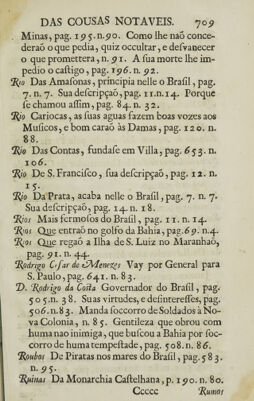 DAS COUSAS NOTAVEIS. 709
Minas, pag. 195. n. 90. Como lhe naõ conce-
deraõ o que pedia, quiz occultar, e desvanecer
o que promettera, n. 91. A sua morte lhe im-
pedio o castigo, pag. 196. n. 92.
Rio Das Amasonas, principia nelle o Brasil, pag.
7. n. 7. Sua descripçaõ, pag. 11. n. 14. Porque
se chamou assim, pag. 84. n. 32.
Rio Cariocas, as suas aguas fazem boas vozes aos
Musicos, e bom caraõ às Damas, pag. 120. n.
88.
Rio Das Contas, fundase em Villa, pag. 653. n.
106.
Rio De S. Francisco, sua descripçaõ, pag. 12. n.
15.
Rio Da Prata, acaba nelle o Brasil, pag. 7. n. 7.
Sua descripçaõ, pag. 14. n. 18.
Rios Mais fermosos do Brasil, pag. 11. n. 14.
Rios Que entraõ no golfo da Bahia, pag. 69. n. 4.
Rios Que regaõ a Ilha de S. Luiz no Maranhaõ,
pag. 91. n. 44.
Rodrigo Cesar de Menezes Vay por General para
S. Paulo, pag. 641. n. 83.
D. Rodrigo da Costa Governador do Brasil, pag.
505. n. 38. Suas virtudes, e desinteresses, pag.
506. n. 83. Manda soccorro de Soldados à No-
va Colonia, n. 85. Gentileza que obrou com
huma nao inimiga, que buscou a Bahia por soc-
corro de huma tempestade, pag. 508. n. 86.
Roubos De Piratas nos mares do Brasil, pag. 583.
n. 95.
Ruinas Da Monarchia Castelhana, p. 190. n. 80.
Ccccc Rumos